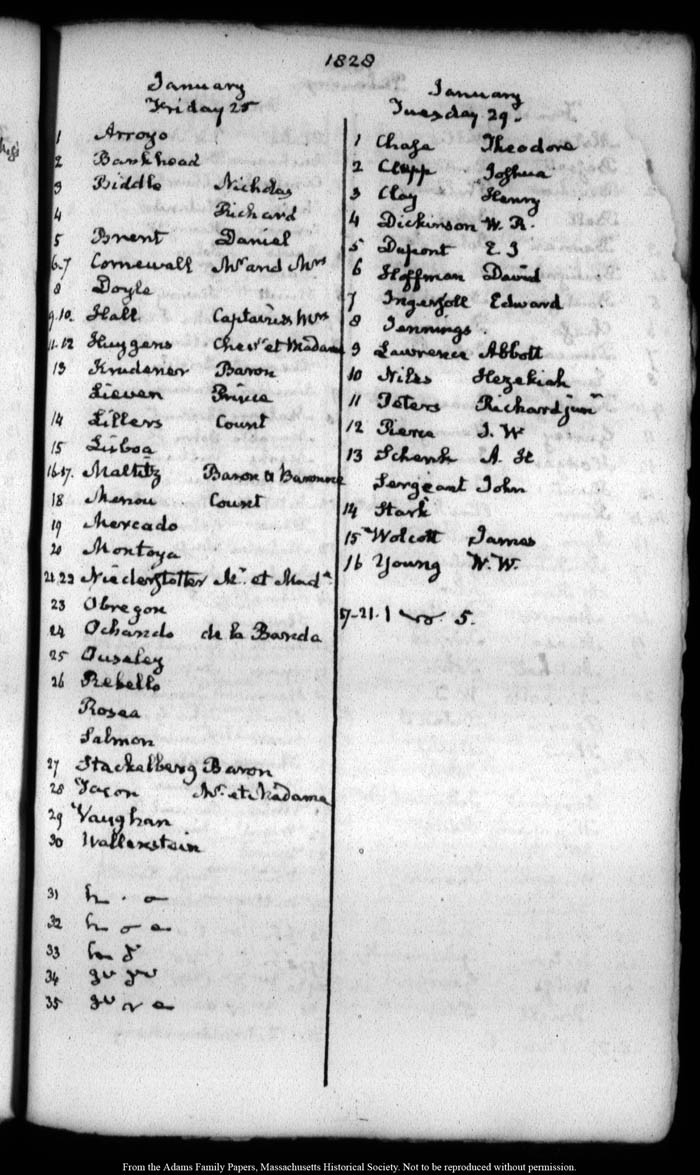 1828
January
Friday 25
1 Arroyo
2 Bankhead
3 Biddle Nicholas
4 Richard
5 Brent Daniel
6.7 Cornewall Mr and Mrs
8 Doyle
9.10. Hall Captain & Mrs
11.12 Huygens Chevr et Madame
13 Krudener Baron
Lieven Prince
14 Lillers Count
15 Lisboa
16.17. Maltitz Baron & Baroness
18 Menou Count
19 Mercado
20 Montoya
21.22 Niederstetter Mr. et Madme
23 Obregon
24 Ochando de la Banda
25 Ouseley
26 Rebello
Rosea
Salmon
27 Stackelberg Baron
28 Tacon Mr. et Madame
29 Vaughan
30 Wallenstein
31
32
33
34
35
January
Tuesday 29.
1 Chase Theodore
2 Clapp Joshua
3 Clay Henry
4 Dickinson W. R.
5 Dupont E. I
6 Hoffman David
7 Ingersoll Edward
8 Jennings.
9 Lawrence Abbott
10 Niles Hezekiah
11 Peters Richard junr
12 Pierce I. W
13 Schenk A. H
Sergeant John
14 Stark
15 Wolcott James
16 Young W. W.
17-21. 5.
From the Adams Family Papers, Massachusetts Historical Society. Not to be reproduced without permission.